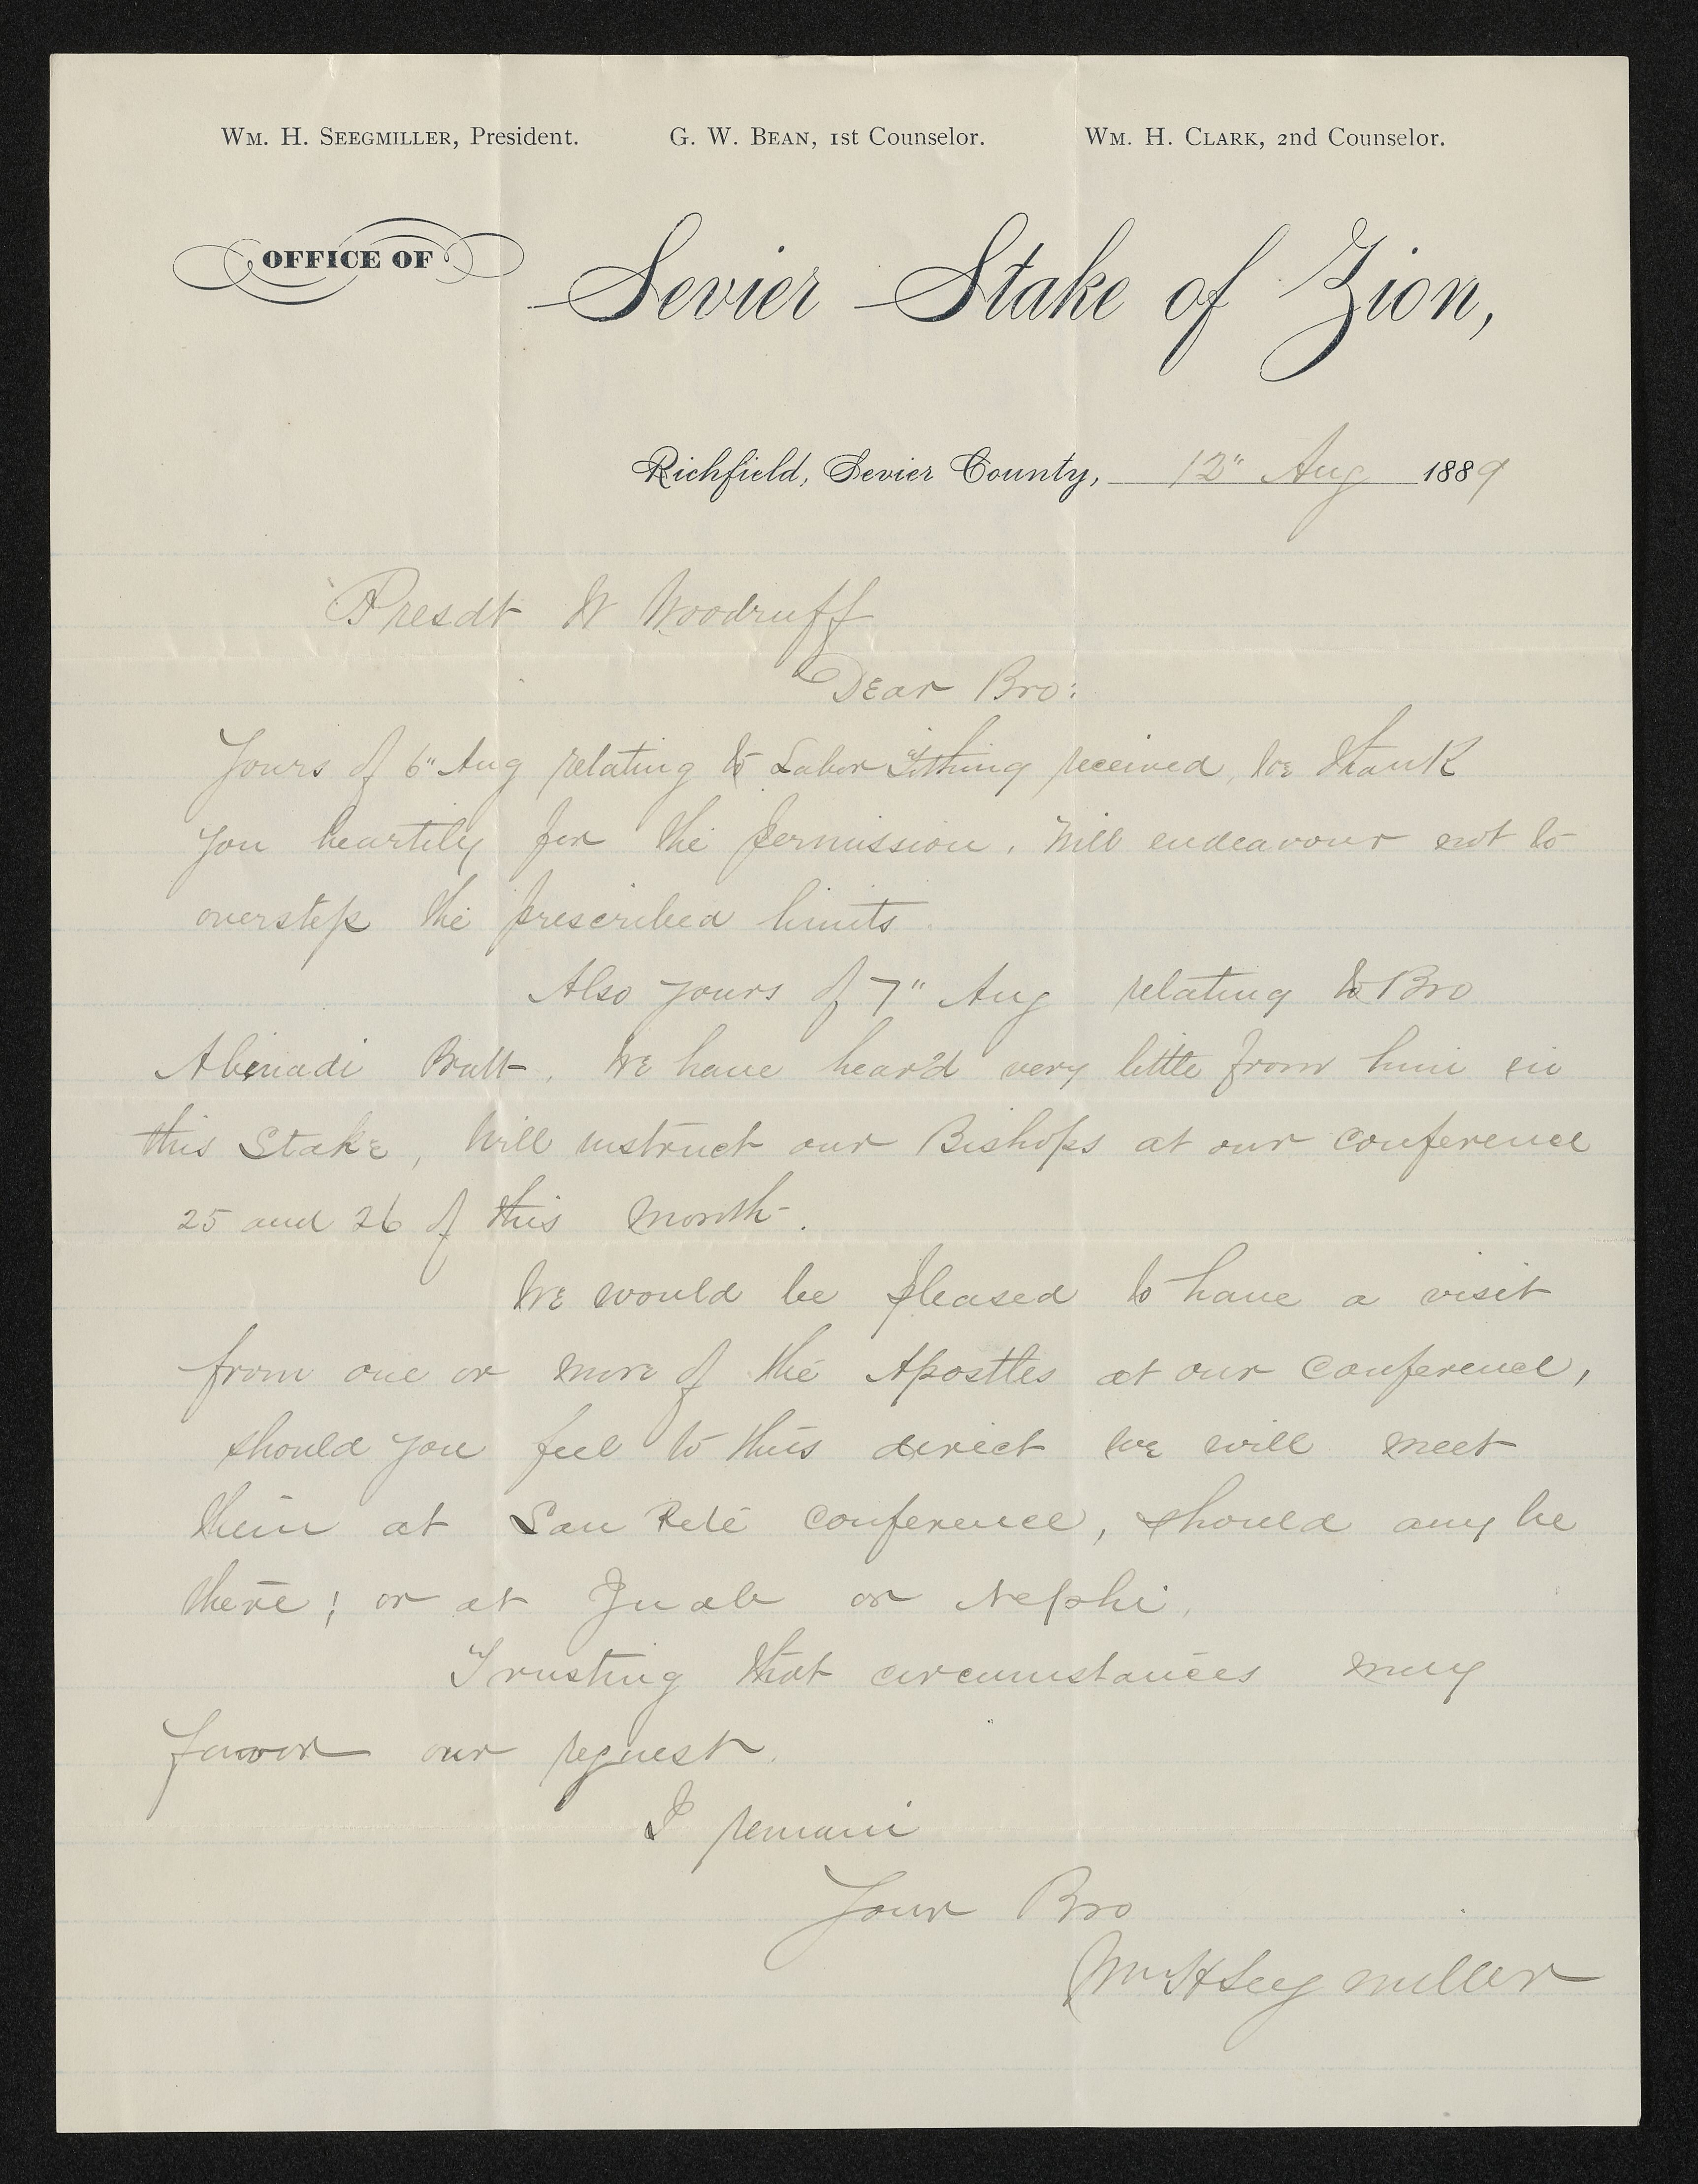 WM. H. SEEGMILLER, President. G. W. BEAN, 1st Counselor. WM. H. CLARK, 2nd Counselor.
OFFICE OF Sevier Stake of Zion,
Richfield, Sevier County, 12" Aug 1889
Presdt W Woodruff
Dear Bro:
Yours of 6" Aug relating to Labor Tithing received, We thank
you heartily for the permission. Will endeavour not to
overstep the prescribed limits.
Also yours of 7" Aug relating to Bro
Abinadi Pratt. We have heard very little from him in
this Stake, Will instruct our Bishops at our conference
25 and 26 of this month.
We would be pleased to have a visit
from one or more of the Apostles at our Conference,
should you feel to thus direct we will meet
them at San Pete conference, should any be
there; or at Juab or Nephi.
Trusting that circumstances may
favor our request.
I remain
Your Bro
Wm H Seegmiller